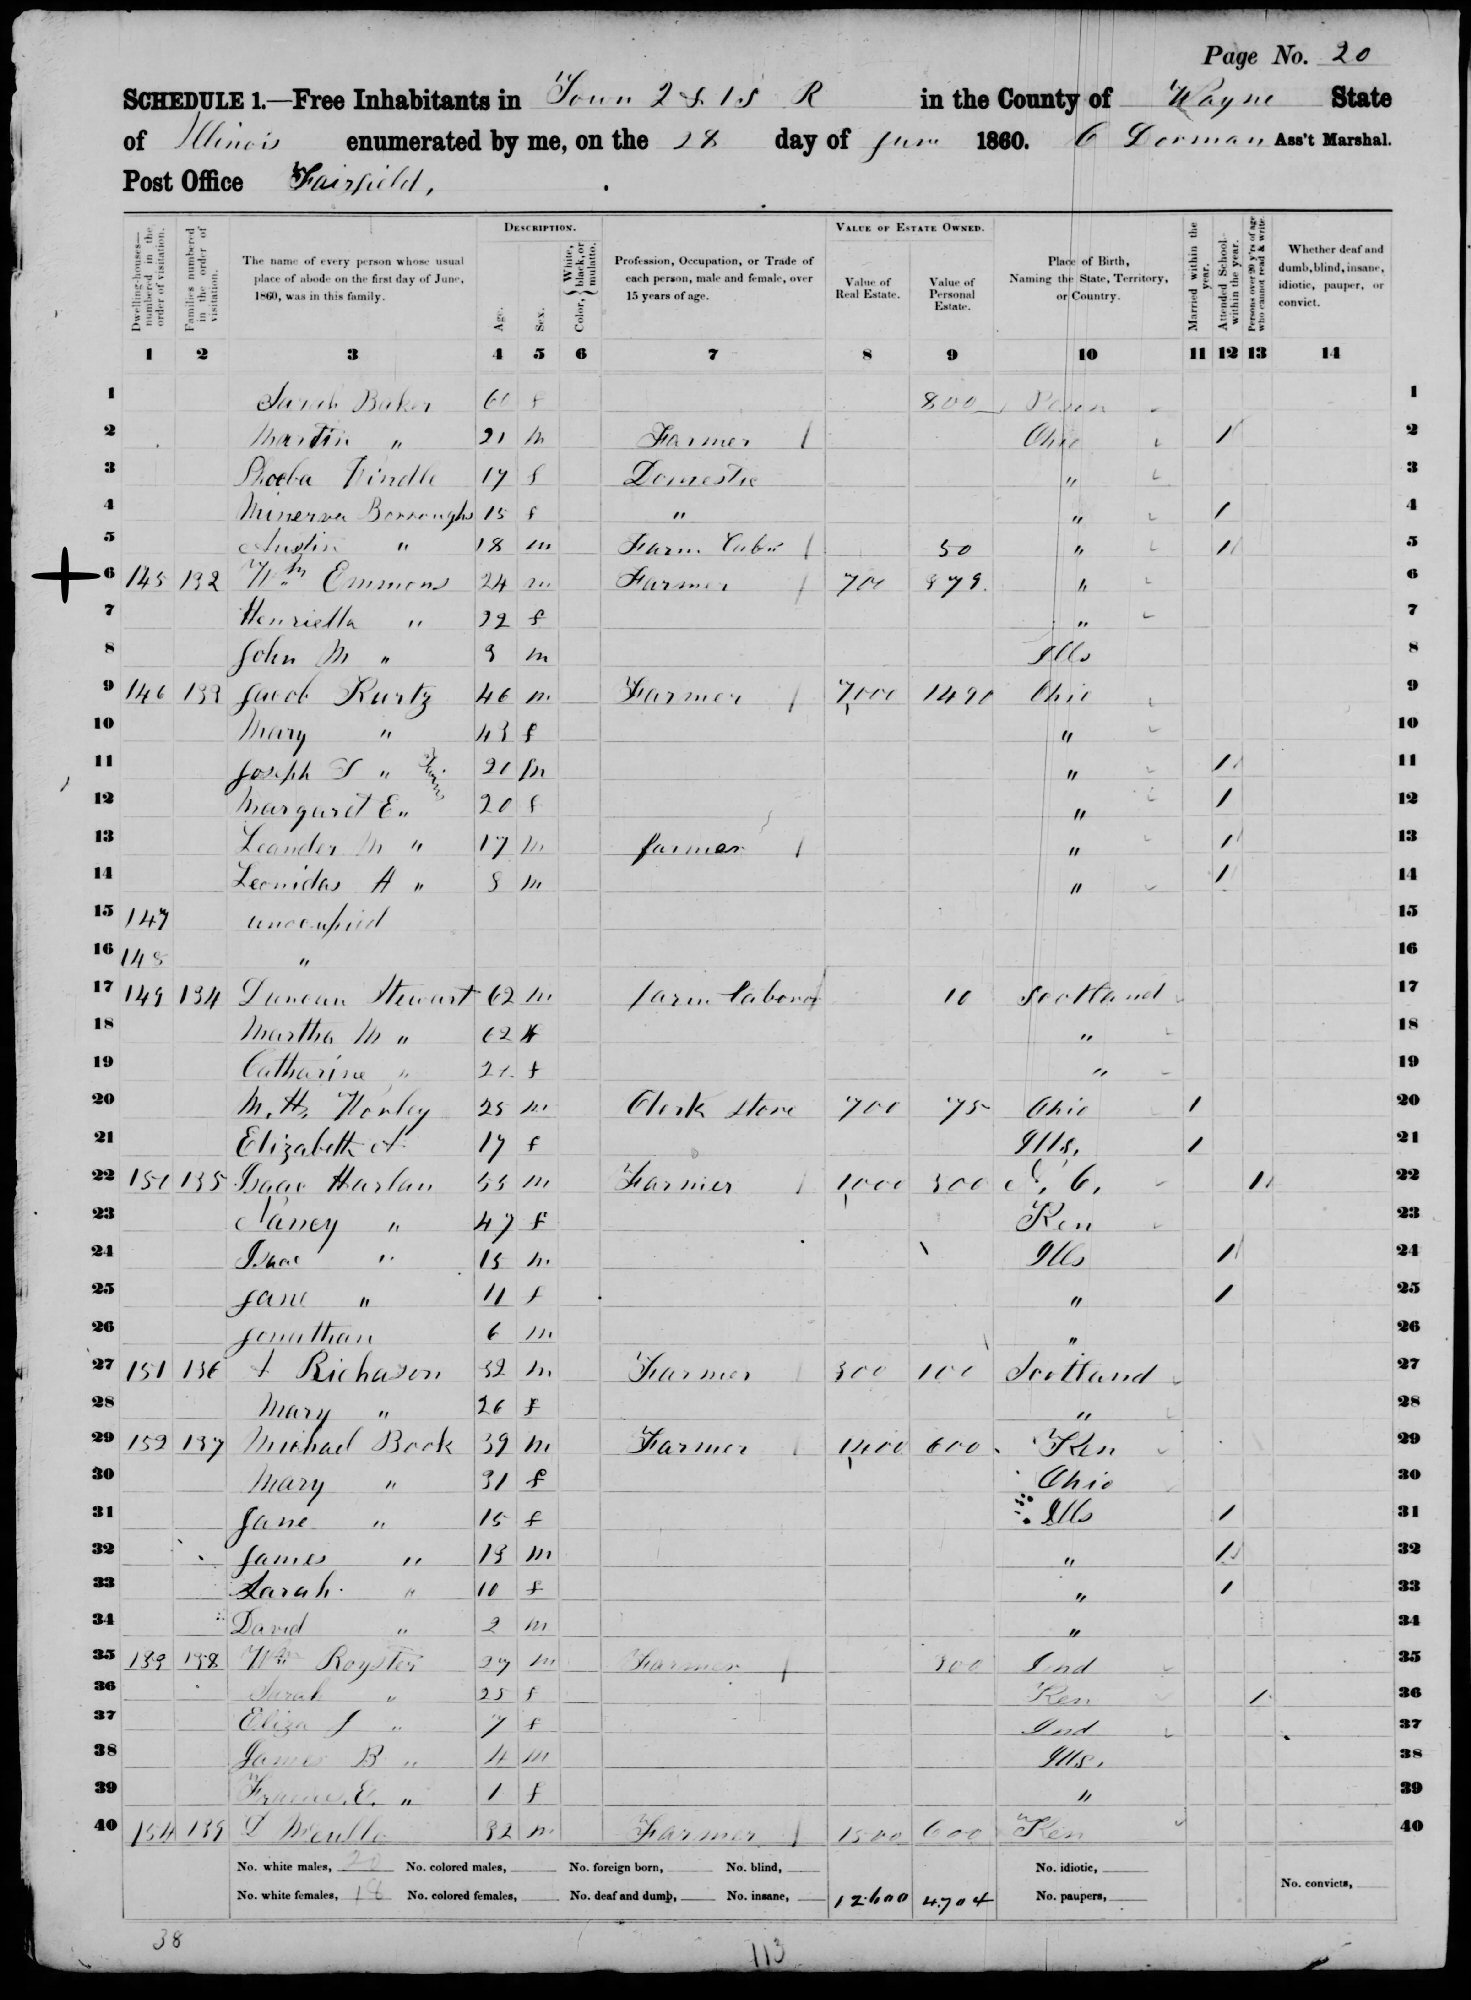 Page No. 20
SCHEDULE 1.—Free Inhabitants in Town 2 S 1 S R in the County of Wayne State
of Illinois enumerated by me, on the 28 day of June 1860. C Dorman Ass't Marshal.
Post Office Fairfield,
DESCRIPTION. VALUE OF ESTATE OWNED.
Dwelling-houses—numbered in the order of visitation. Families numbered in the order of visitation. The name of every person whose usual place of abode on the first day of June, 1860, was in this family. Age. Sex. Color, { White, black, or mulatto. Profession, Occupation, or Trade of each person, male and female, over 15 years of age. Value of Real Estate. Value of Personal Estate. Place of Birth, Naming the State, Territory, or Country. Married within the year. Attended School within the year. Persons over 20 y'rs of age who cannot read & write. Whether deaf and dumb, blind, insane, idiotic, pauper, or convict.
1 2 3 4 5 6 7 8 9 10 11 12 13 14
1 Sarah Baker 60 f 800 Penn 1
2 Martin " 21 m Farmer / Ohio 1 2
3 Phoeba 17 f Domestic " 3
4 Minerva Borroughs 15 f " " 1 4
5 Austin " 18 m Farm Labor / 50 " 1 5
6 145 132 Wm Emmons 24 m Farmer / 700 " 6
7 Henrietta " 22 f " 7
8 John M " 3 m Ills 8
9 146 133 Jacob Kurtz 46 m Farmer / 7000 1490 Ohio 9
10 Mary " 43 f " 10
11 Joseph S " Twins 20 m " 1 11
12 Margaret E " 20 f " 1 12
13 Leander M " 17 m farmer / " 1 13
14 Leonidas A " 8 m " 1 14
15 147 unoccupied 15
16 148 " 16
17 149 134 Duncan Stewart 62 m farm laborer 10 Scotland 17
18 Martha M " 62 f " 18
19 Catharine " f " 19
20 M. H. 25 m Clerk Store 700 75 Ohio 1 20
21 Elizabeth A 17 f Ills. 1 21
22 150 135 Isaac Harlan 53 m Farmer / 1000 300 N. C. 1 22
23 Nancy " 47 f Ken 23
24 Isaac " 15 m Ills 1 24
25 Jane " 11 f " 1 25
26 Jonathan 6 m " 26
27 151 136 A Richason 32 m Farmer 300 100 Scotland 27
28 Mary " 26 f " 28
29 152 137 Michael Book 39 m Farmer 600 Ken 29
30 Mary " 31 f Ohio 30
31 Jane " 15 f Ills 1 31
32 James " 13 m " 1 32
33 Sarah " 10 f " 1 33
34 David " 2 m " 34
35 153 138 Wm Royster 27 m Farmer / 300 Ind 35
36 Sarah " 25 f Ken 1 36
37 Eliza J " 7 f Ind 37
38 James B " 4 m Ills. 38
39 E. " 1 f " 39
40 154 139 32 m Farmer / 1500 600 Ken 40
No. white males, 20 No. colored males, No. foreign born, No. blind, No. idiotic,
No. white females, 18 No. colored females, No. deaf and dumb, No. insane, 12.600 4.704 No. paupers, No. convicts,
38
113